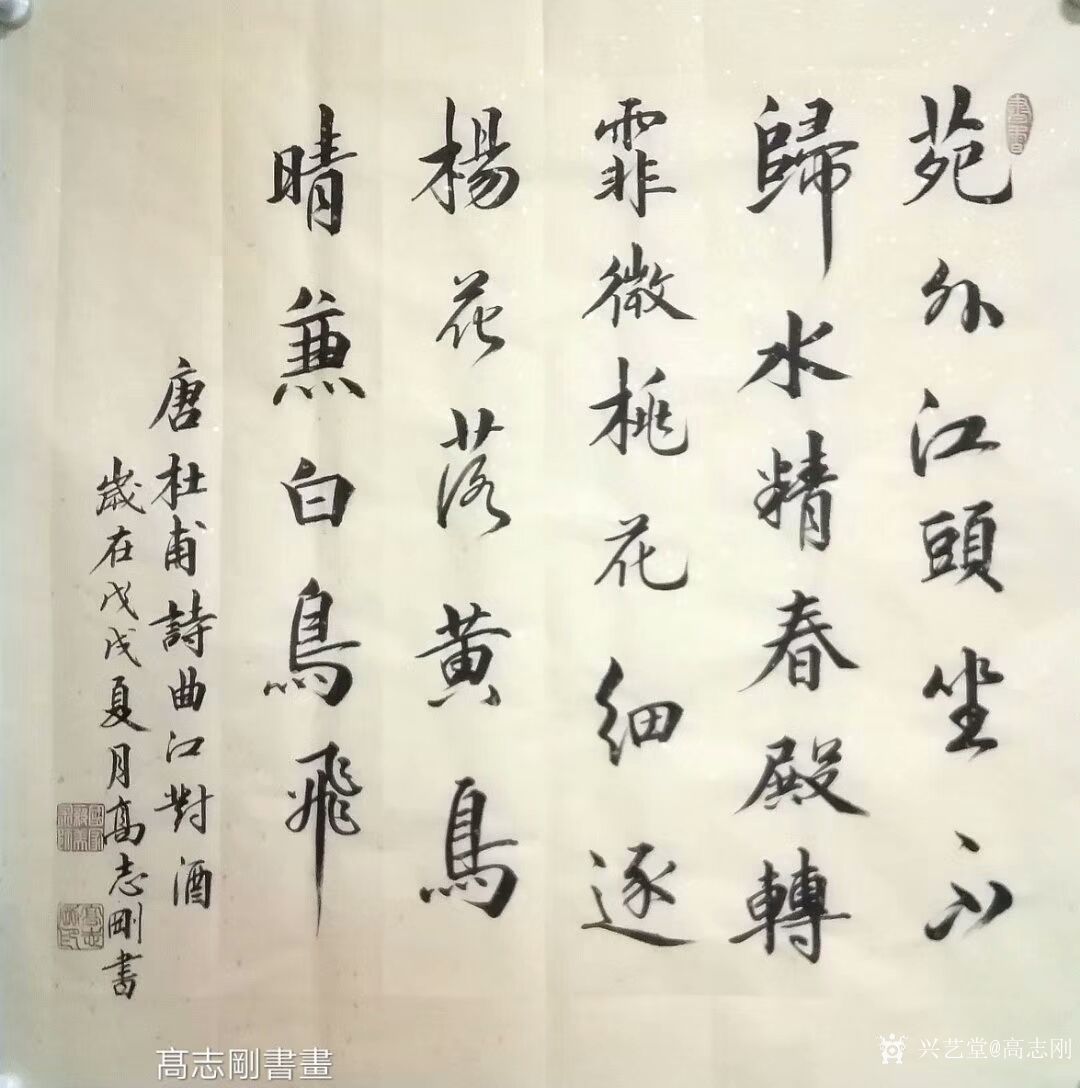 苑外江頭坐不
歸水精春殿轉
霏微桃花細逐
楊花落黃鳥
晴兼白鳥飛
唐杜甫詩曲江對酒
歲在戊戌夏月高志剛書
髙志剛書畫
兴艺堂@高志刚